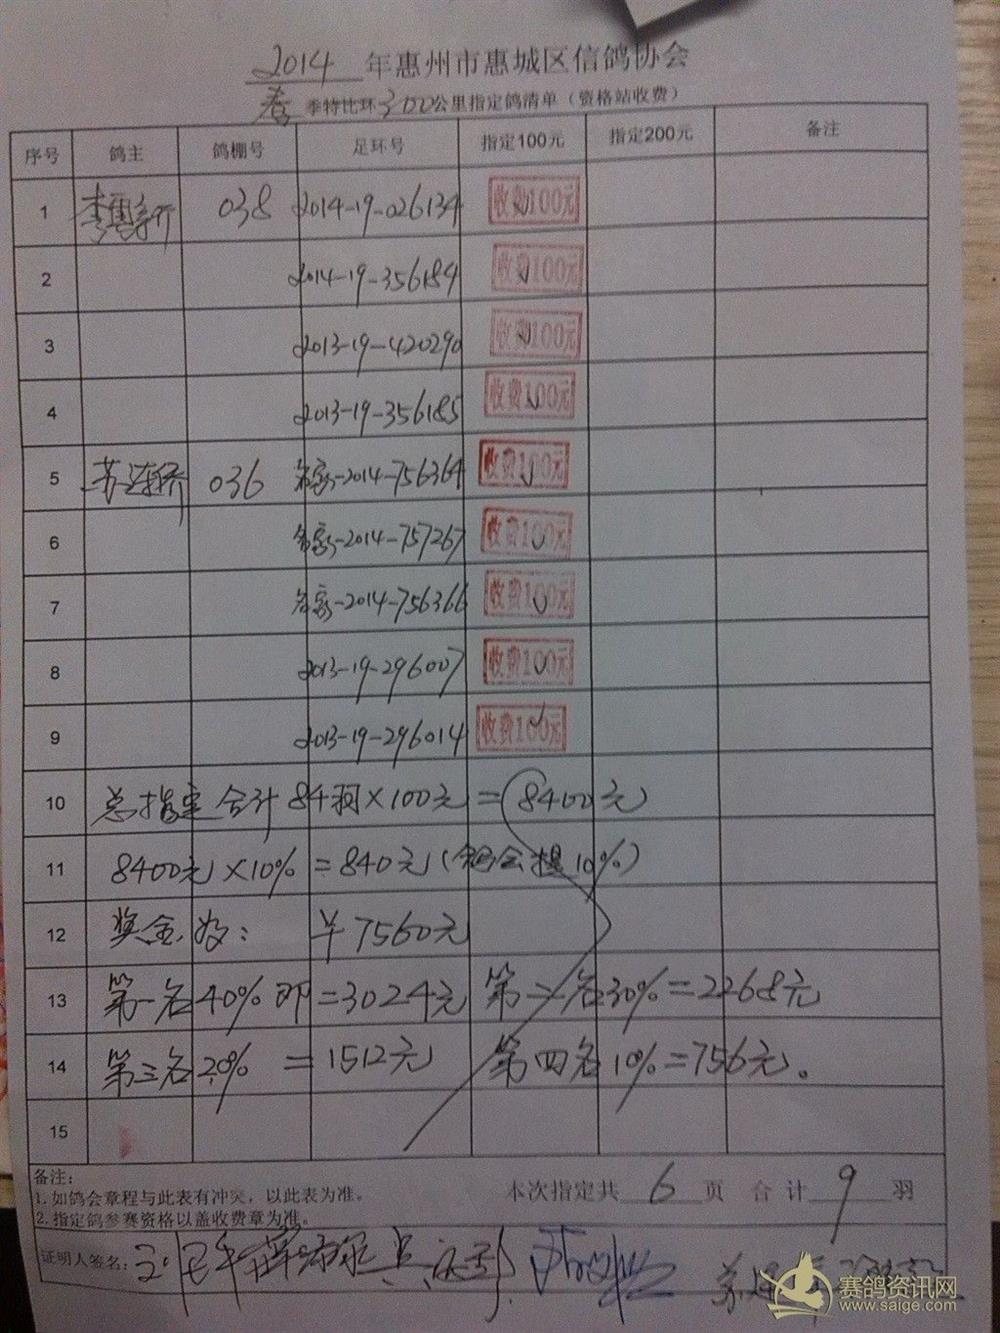 2014 年惠州市惠城区信鸽协会
春 季特比环300公里指定鸽清单（资格站收费）
序号 鸽主 鸽棚号 足环号 指定100元 指定200元 备注
1 038 2014-19-026134 收费100元
2 2014-19-356184 收费100元
3 2013-19-420290 收费100元
4 2013-19-356185 收费100元
5 036 2014-756364 收费100元
6 2014-757267 收费100元
7 2014-756366 收费100元
8 2013-19-296007 收费100元
9 2013-19-296014 收费100元
10 总指定合计84羽×100元=8400元
11 8400元×10%=840元(鸽会提10%)
12 奖金 : ¥7560元
13 第一名40%即=3024元 第二名30%=2268元
14 第三名20% =1512元 第四名10%=756元。
15
备注:
1.如鸽会章程与此表有冲突，以此表为准。
本次指定共 6 页 合计 9 羽
2.指定鸽参赛资格以盖收费章为准。
证明人签名:
赛鸽资讯网
www.saige.com